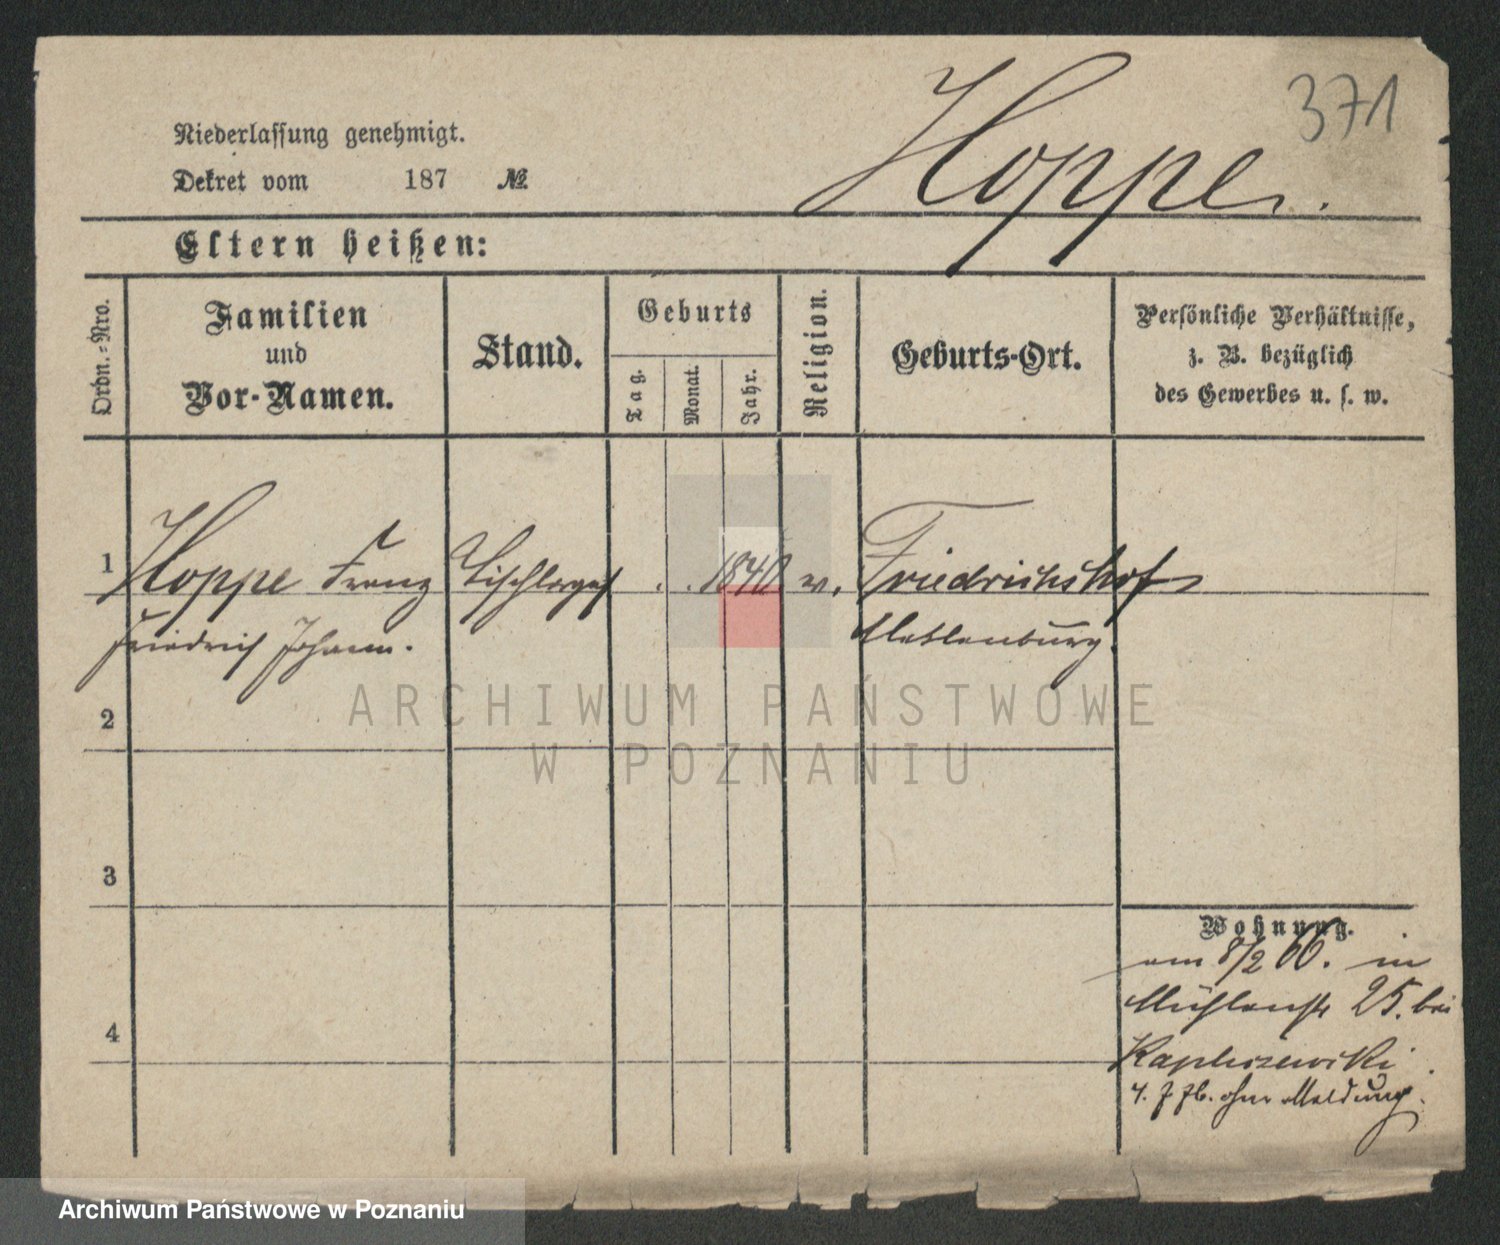 371
Hoppe.
Niederlassung genehmigt.
Dekret vom 187 №
Eltern heißen:
Ordn.-Nro.
Familien
und
Vor-Namen.
Stand.
Geburts
Tag.
Monat.
Jahr.
Religion.
Geburts-Ort.
Persönliche Verhältnisse,
z. B. bezüglich
des Gewerbes u. s. w.
1 Hoppe Franz Tischlerges . . 1840 Friedrichshof
Friedrich Johann. Meklenburg.
ARCHIWUM PAŃSTWOWE
2
W POZNANIU
3
Wohnung.
am 8/2 66. in
Mühlenstr 25. bei
4
ohne Meldung.
Archiwum Państwowe w Poznaniu